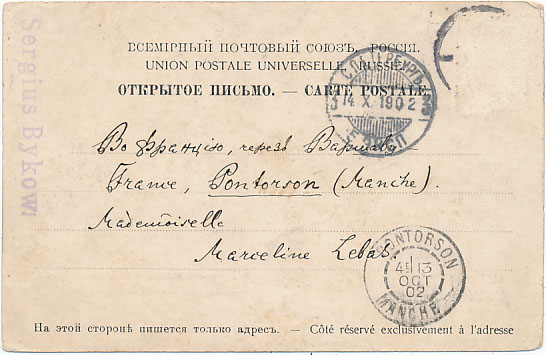 Sergius Bykow.
ВСЕМІРНЫЙ ПОЧТОВЫЙ СОЮЗЪ. РОССІЯ.
UNION POSTALE UNIVERSELLE. RUSSIE.
ОТКРЫТОЕ ПИСЬМО. — CARTE POSTALE.
С.ПЕТЕРБУРГЪ
14 X. 1902
Во Францію, черезъ Варшаву
France, Pontorson (Manche).
Mademoiselle
Marceline Lebas.
PONTORSON
13
OCT
02
MANCHE
На этой сторонѣ пишется только адресъ. — Côté réservé exclusivement à l'adresse